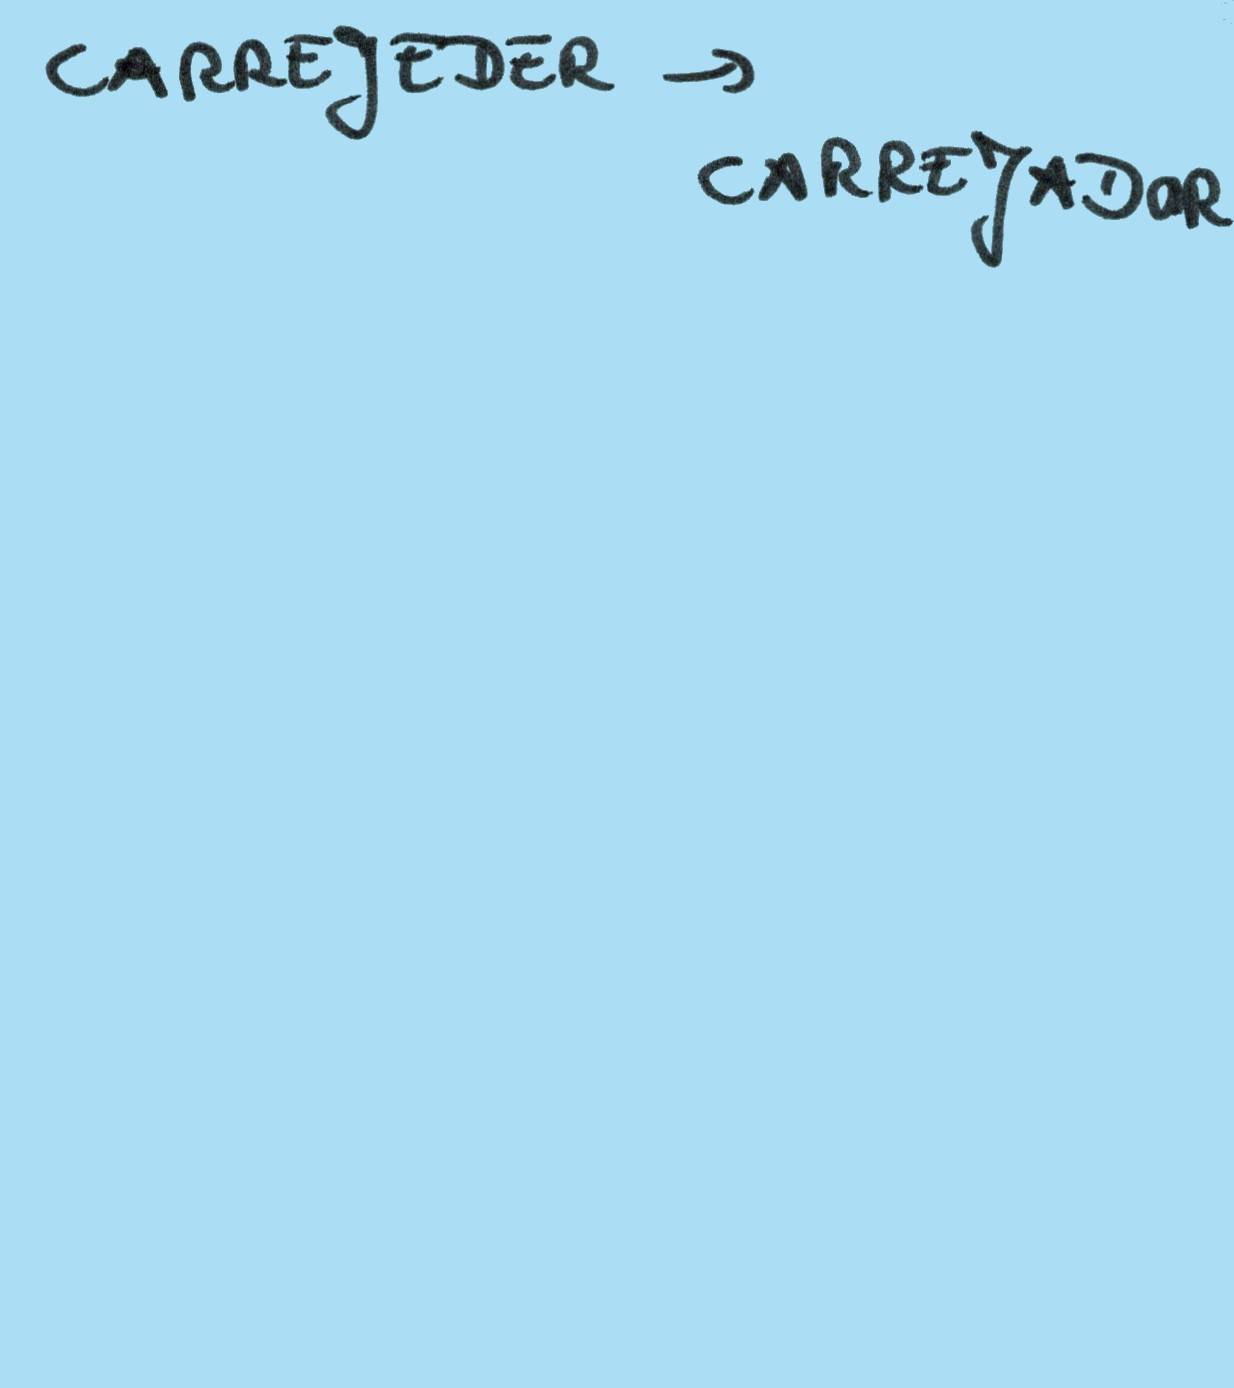 CARREJEDER →
CARREJADOR